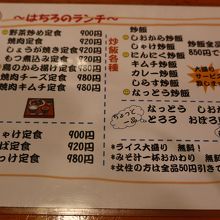 ～はちろのランチ～
野菜炒め定食 900円
焼肉定食
しょうが焼き定食
もつ煮込み定食
鳥のから揚げ定食
焼肉チーズ定食 980円
焼肉キムチ定食 980円
しゃけ定食 900円
さば定食 900円
ほっけ定食 980円
炒飯各種
炒飯
しおから炒飯
しゃけ炒飯
にんにく炒飯
キムチ炒飯
カレー炒飯
しらす炒飯
なっとう炒飯
炒飯全品
850円
大盛り
サービス
ちょっと一品
なっとう
とろろ おぼろ
＊ライス大盛り 無料
＊みそ汁一杯おかわり 無料
＊女性の方は全品50円引きで